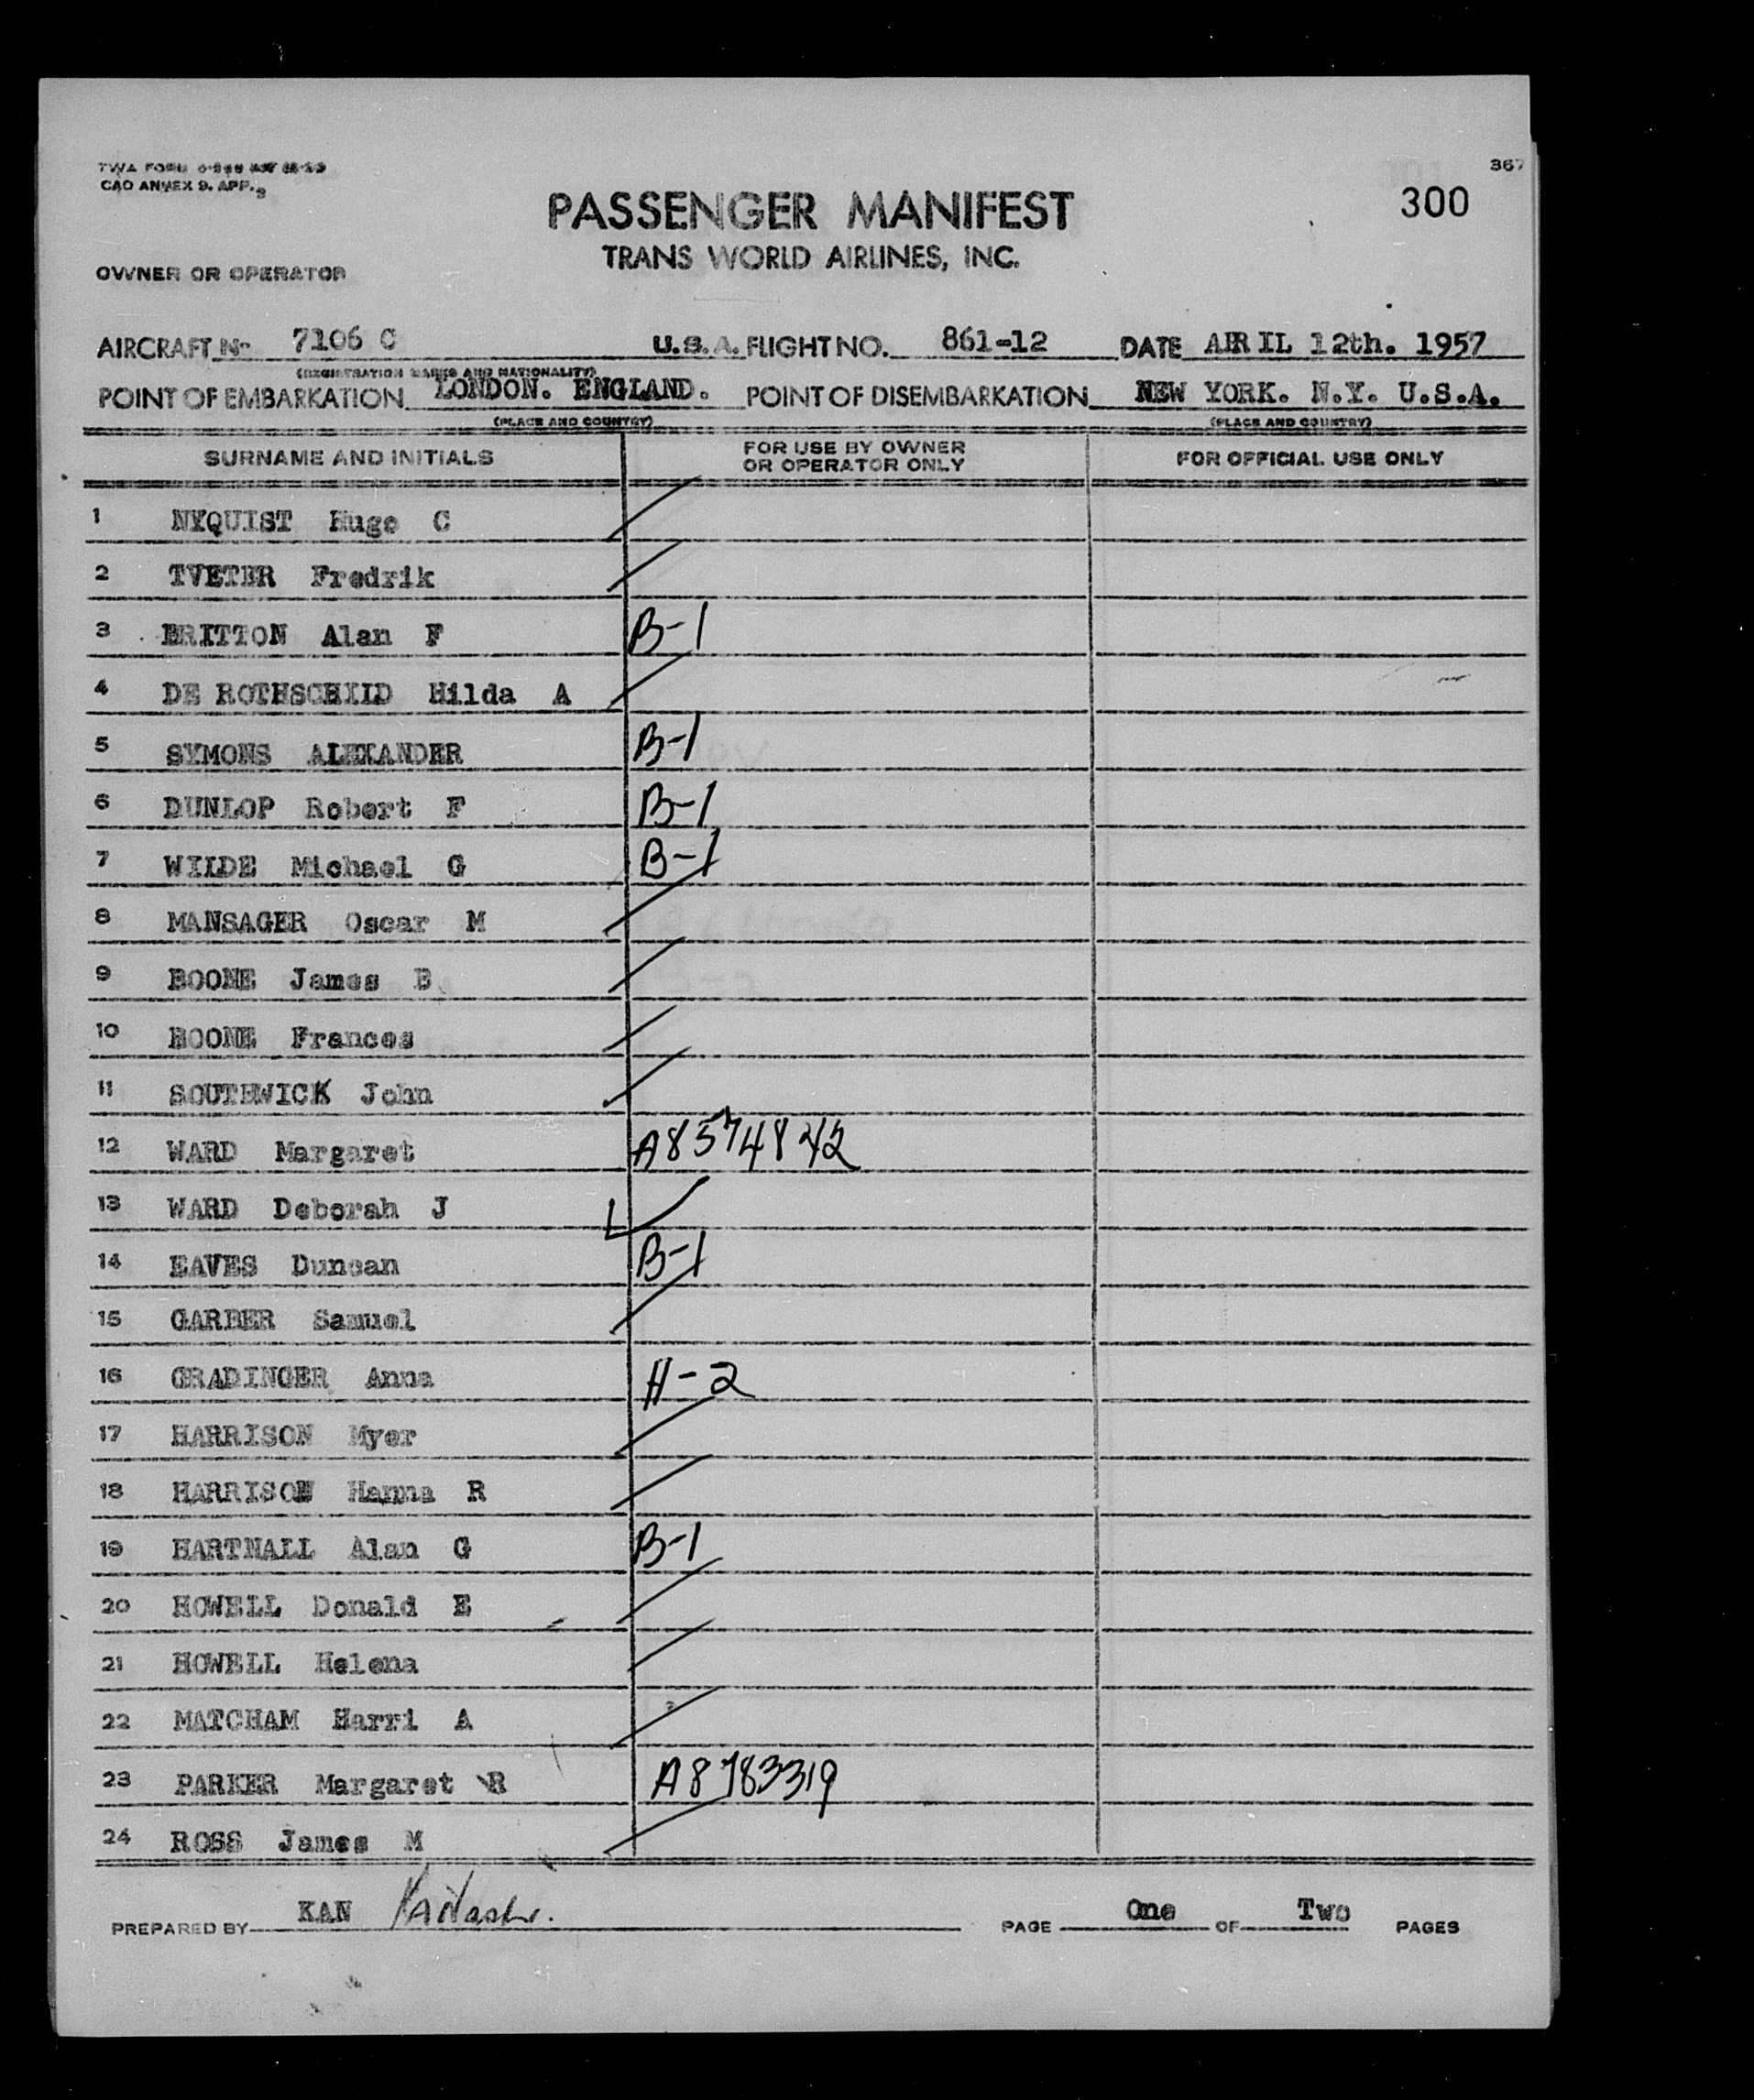 367
CAO ANNEX 9. APP. 3
300
PASSENGER MANIFEST
TRANS WORLD AIRLINES, INC.
OWNER OR OPERATOR
AIRCRAFT No 7106 C U.S.A. FLIGHT NO. 861-12 DATE APRIL 12th. 1957
(REGISTRATION MARKS AND NATIONALITY)
POINT OF EMBARKATION LONDON. ENGLAND. POINT OF DISEMBARKATION NEW YORK. N.Y. U.S.A.
(PLACE AND COUNTRY) (PLACE AND COUNTRY)
SURNAME AND INITIALS FOR USE BY OWNER OR OPERATOR ONLY FOR OFFICIAL USE ONLY
1 NYQUIST Hugo C
2 TVETER Fredrik
3 BRITTON Alan F B-1
4 DE ROTHSCHILD Hilda A
5 SYMONS ALEXANDER B-1
6 DUNLOP Robert F B-1
7 WILDE Michael G B-1
8 MANSAGER Oscar M
9 BOONE James B
10 BOONE Frances
11 SOUTHWICK John
12 WARD Margaret A8574842
13 WARD Deborah J
14 EAVES Duncan B-1
15 GARBER Samuel
16 GRADINGER Anna H-2
17 HARRISON Myer
18 HARRISON Hanna R
19 HARTNALL Alan G B-1
20 HOWELL Donald E
21 HOWELL Helena
22 MATCHAM Harri A
23 PARKER Margaret R A8783319
24 ROSS James M
PREPARED BY KAN PAGE One OF Two PAGES